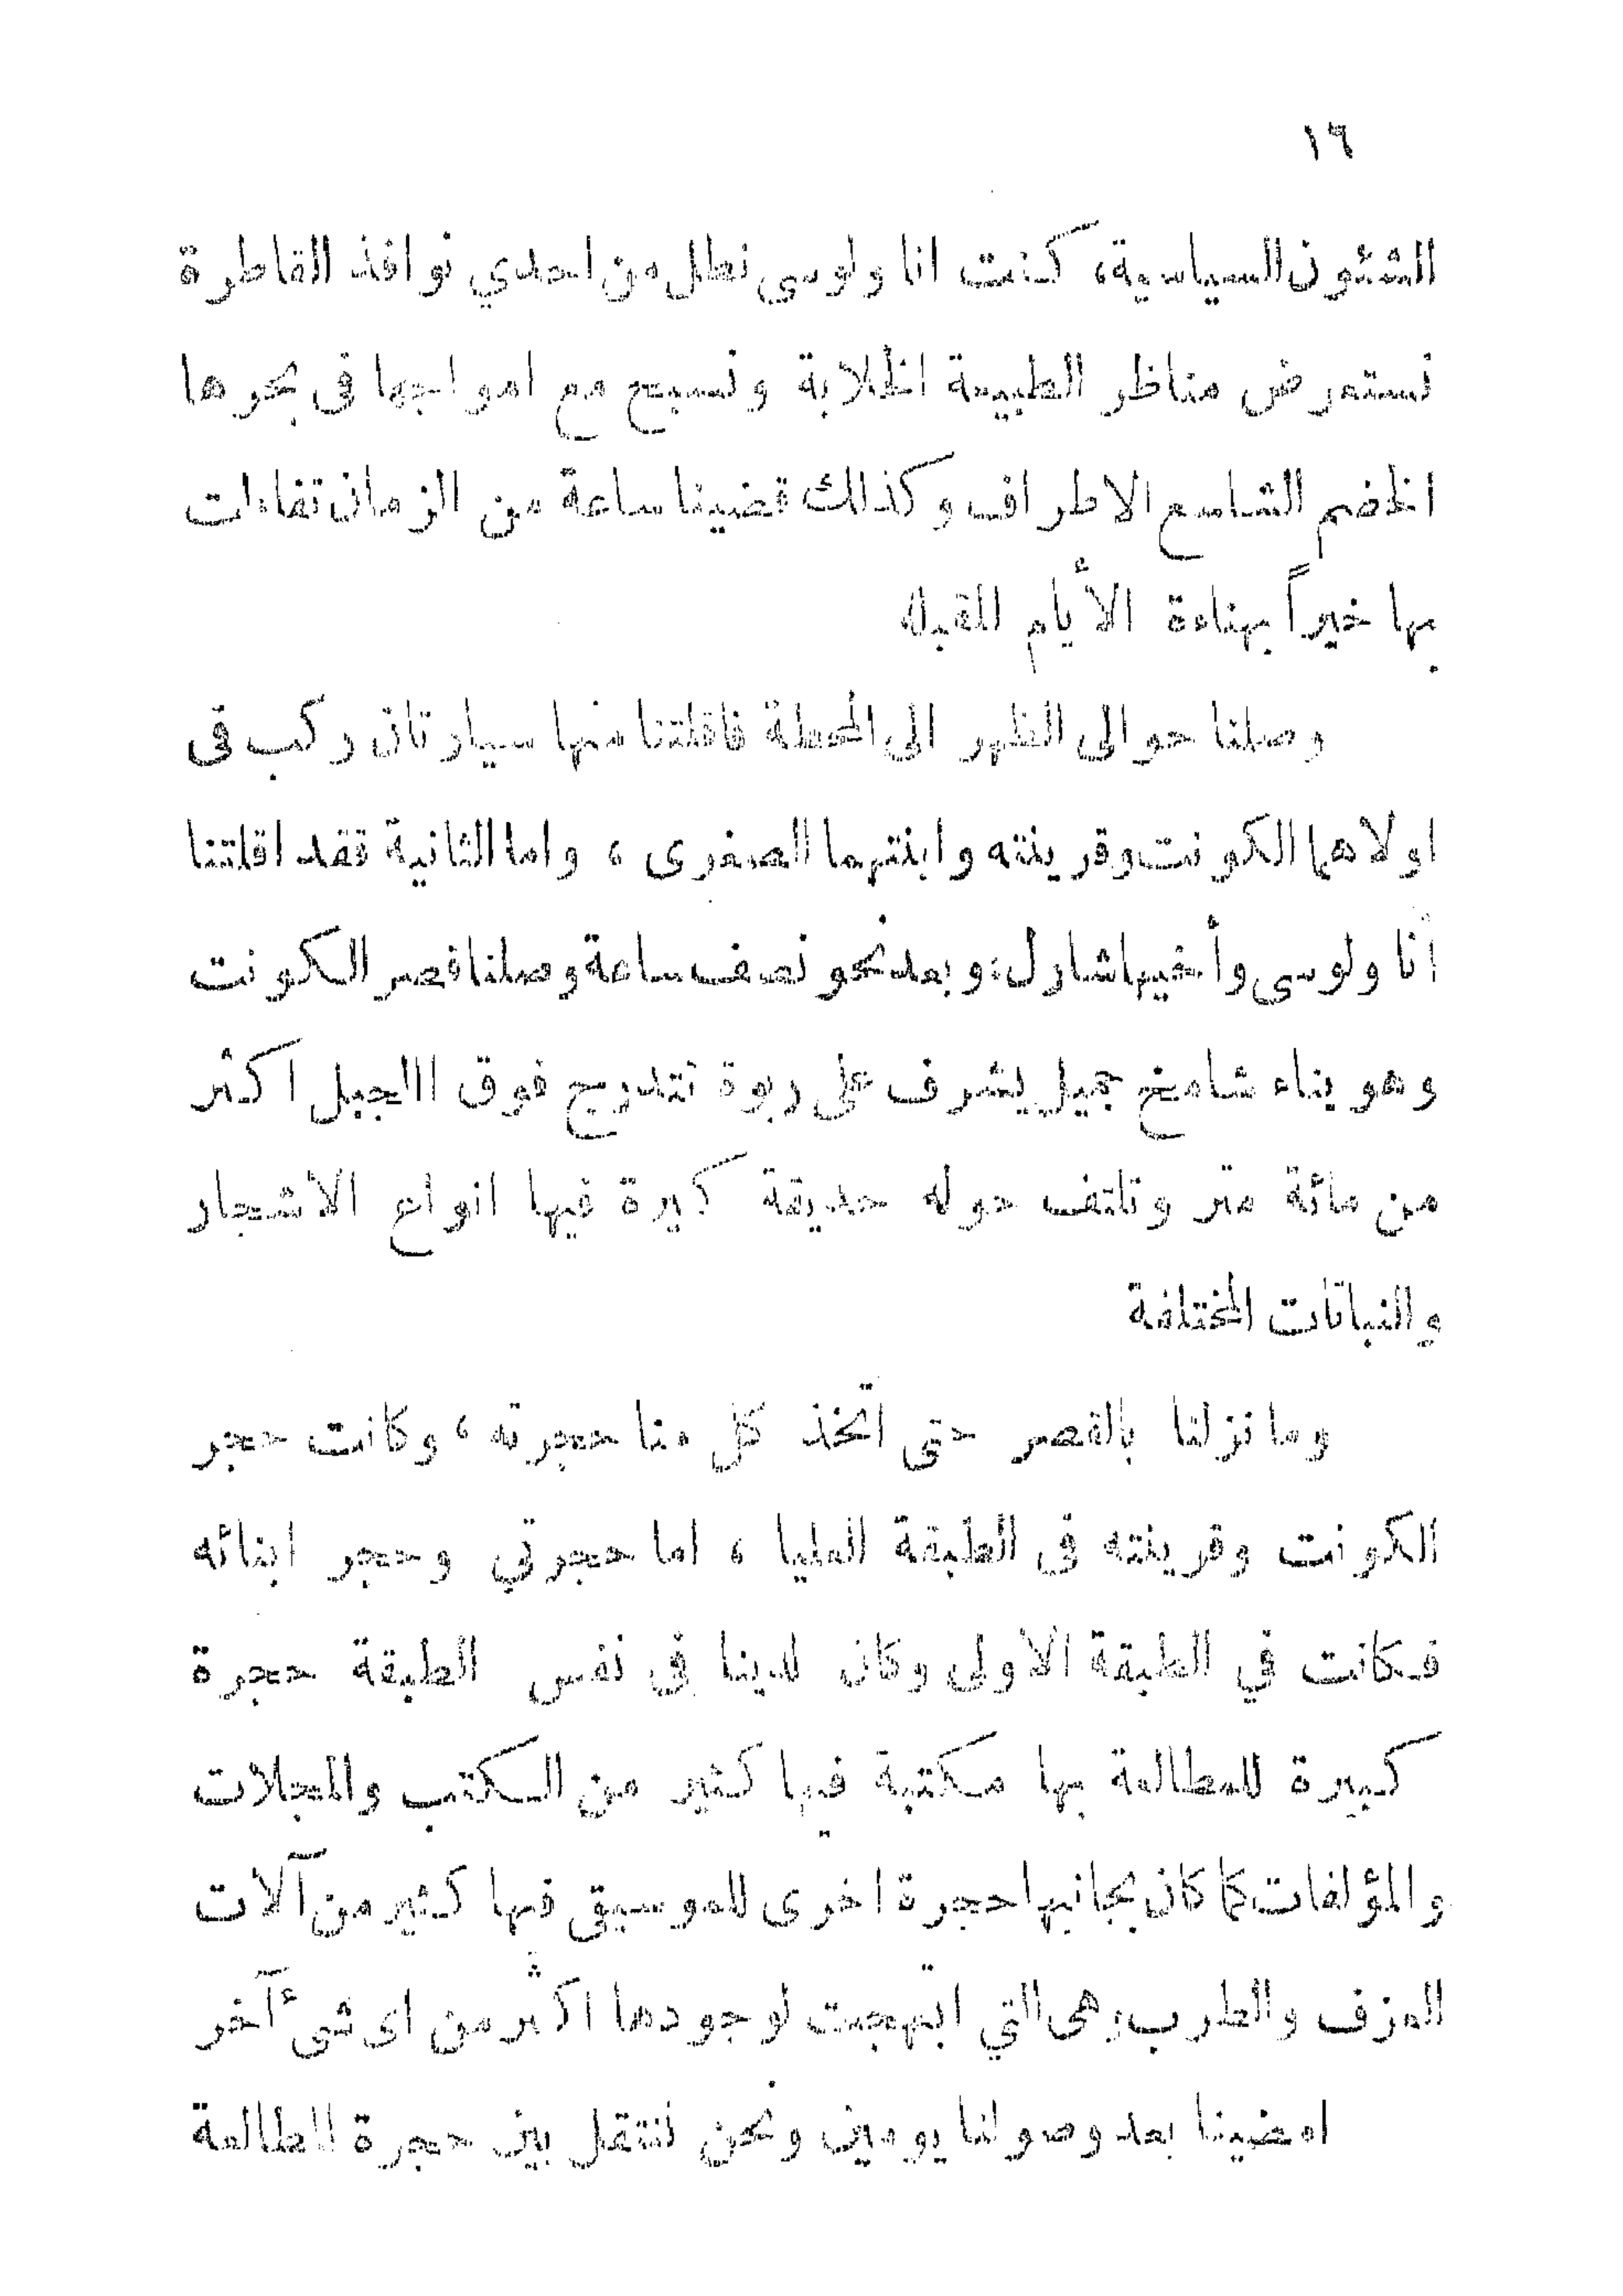 ١٦
الشئون السياسية، كنت انا ولوسى نطل من احدي نوافذ القاطرة
نستعرض مناظر الطبيعة الخلابة ونسبح مع امواجها فى بحرها
الخضم الشاسع الاطراف وكذلك قضينا ساعة من الزمان تفاءلت
بها خيراً بهناءة الأيام المقبلة
وصلنا حوالى الظهر الى المحطة فاقلتنا منها سيارتان ركب فى
اولاهما الكونت وقرينته وابنتهما الصغرى، واما الثانية فقد اقلتنا
أنا ولوسى وأخيها شارل، وبعد نحو نصف ساعة وصلنا قصر الكونت
وهو بناء شامخ جميل يشرف على ربوة تتدرج فوق الجبل اكثر
من مائة متر وتلتف حوله حديقة كبيرة فيها انواع الاشجار
والنباتات المختلفة
وما نزلنا بالقصر حتى اتخذ كل منا حجرته، وكانت حجر
الكونت وقرينته فى الطبقة العليا، اما حجرتي وحجر ابنائه
فكانت في الطبقة الاولى وكان لدينا فى نفس الطبقة حجرة
كبيرة للمطالعة بها مكتبة فيها كثير من الكتب والمجلات
والمؤلفات كما كان بجانبها حجرة اخرى للموسيقى فيها كثير من آلات
العزف والطرب وهى التي ابتهجت لوجودها اكثر من اى شىء آخر
امضينا بعد وصولنا يومين ونحن ننتقل بين حجرة المطالعة